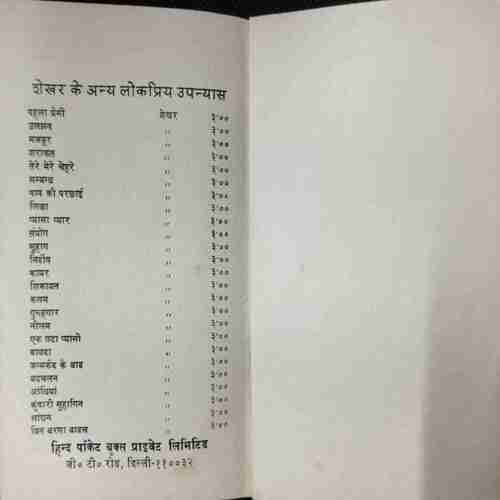 शेखर के अन्य लोकप्रिय उपन्यास
पहला प्रेमी शेखर ३'००
उलझन ,, ३'००
मजबूर ,, ३'००
शराबत ,, ३'००
तेरे मेरे चेहरे ,, ३'००
सम्बन्ध ,, ३'००
पाप की परछाईं ,, ३'००
शिखा ,, ३'००
प्यासा प्यार ,, ३'००
संयोग ,, ३'००
सुहाग ,, ३'००
निर्दोष ,, ३'००
कायर ,, ३'००
शिकायत ,, ३'००
कसम ,, ३'००
गुनहगार ,, ३'००
नीलम ,, ३'००
एक घटा प्यासी ,, ३'००
वायदा ,, ३'००
जन्मकैद के बाद ,, ३'००
बदचलन ,, ३'००
आंधियां ,, ३'००
कुंवारी सुहागिन ,, ३'००
,, ३'००
बिन बरसा बादल ,, ३'००
हिन्द पॉकेट बुक्स प्राइवेट लिमिटिड
जी० टी० रोड, दिल्ली-११००३२